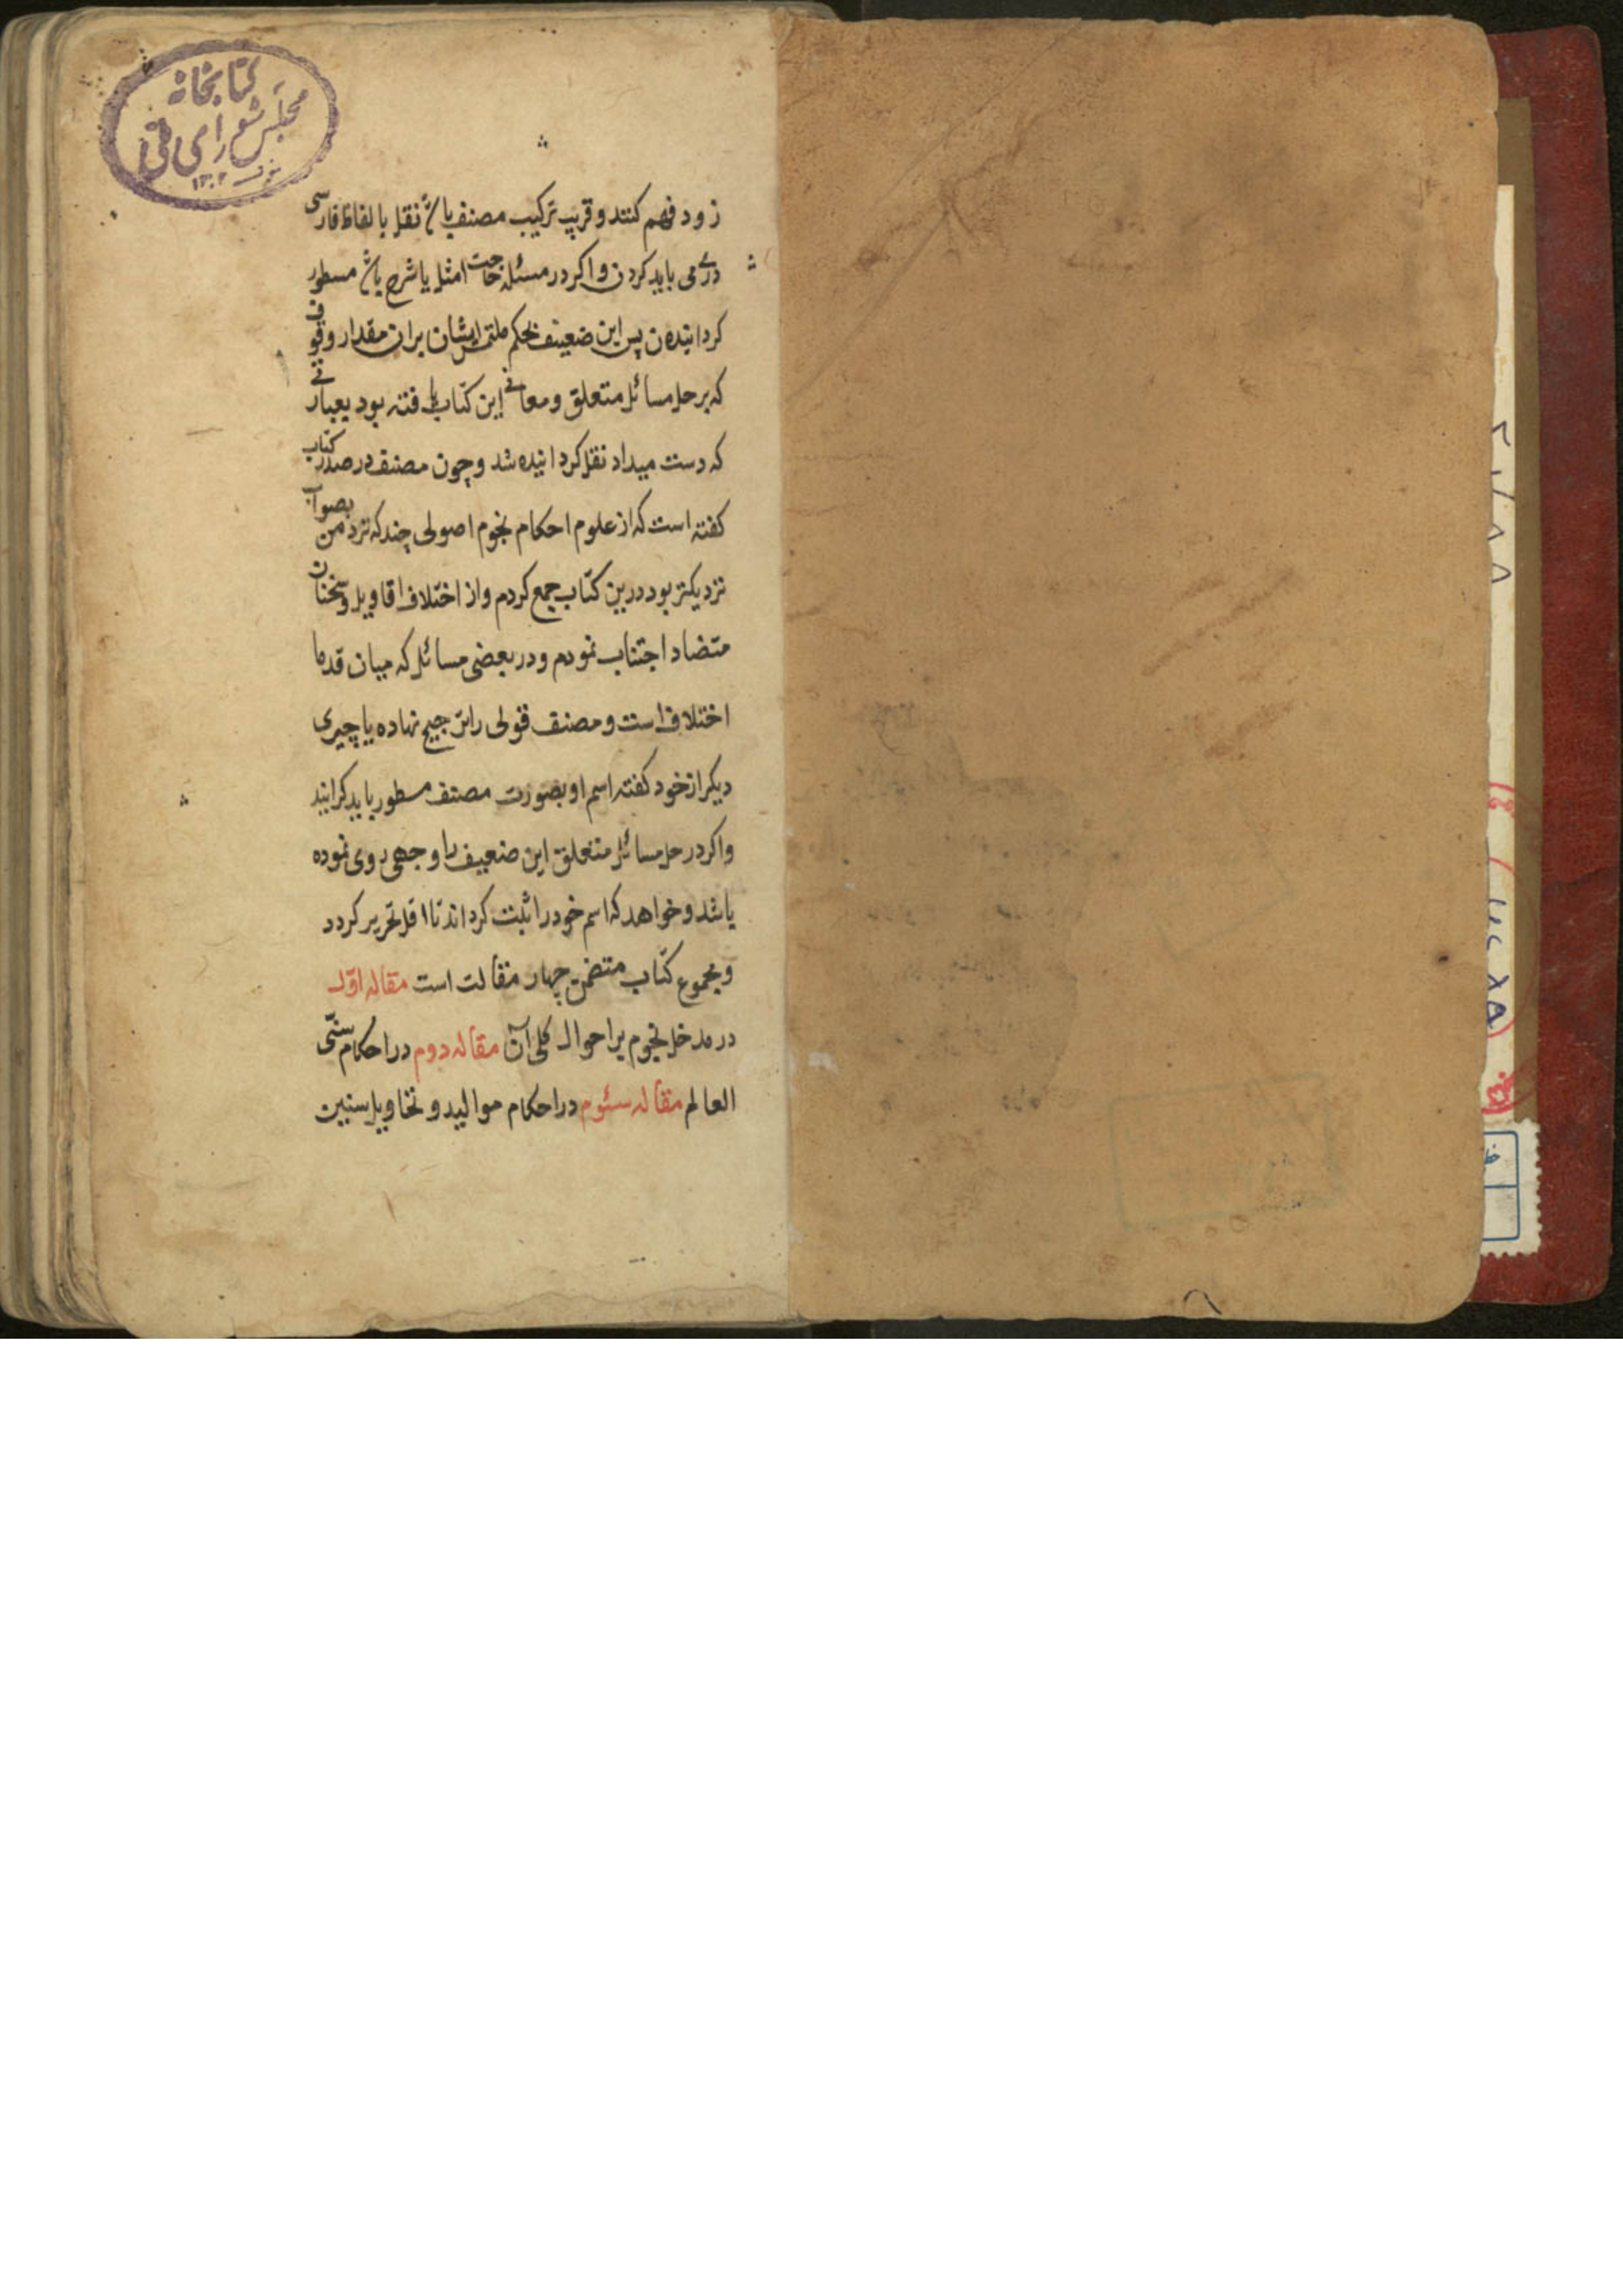 کتابخانه
مجلس شورای ملی
۱۳۰۲
زود فهم کنند و قریب ترکیب مصنف باشد نقل بالفاظ فارسی
دری می باید کردن و اکر در مسئله حاجت امثل یا شرح باشد مسطور
کردانیدن پس این ضعیف بحکم ملتمس ایشان بران مقدار وقوف
که بر حل مسائل متعلق و معانی این کتاب یافته بود بعبارتی
که دست میداد نقل کردانیده شد و چون مصنف در صدر کتاب
کفته است که از علوم احکام نجوم اصولی چند که نزد من بصواب
نزدیکتر بود درین کتاب جمع کردم و از اختلاف اقاویل و سخنان
متضاد اجتناب نمودم و در بعضی مسائل که میان قدما
اختلاف است و مصنف قولی را ترجیح نهاده یا چیزی
دیکر از خود کفته اسم او بصورت مصنف مسطور باید کرانید
و اکر در حل مسائل متعلق این ضعیف را وجهی روی نموده
باشد و خواهد که اسم خود را ثبت کرداند تا اقل تحریر کردد
و مجموع کتاب متضمن چهار مقالت است مقاله اول
در مدخل نجوم براحوال کلی آن مقاله دوم در احکام سنی
العالم مقاله سئوم در احکام موالید و تحاویل سنین